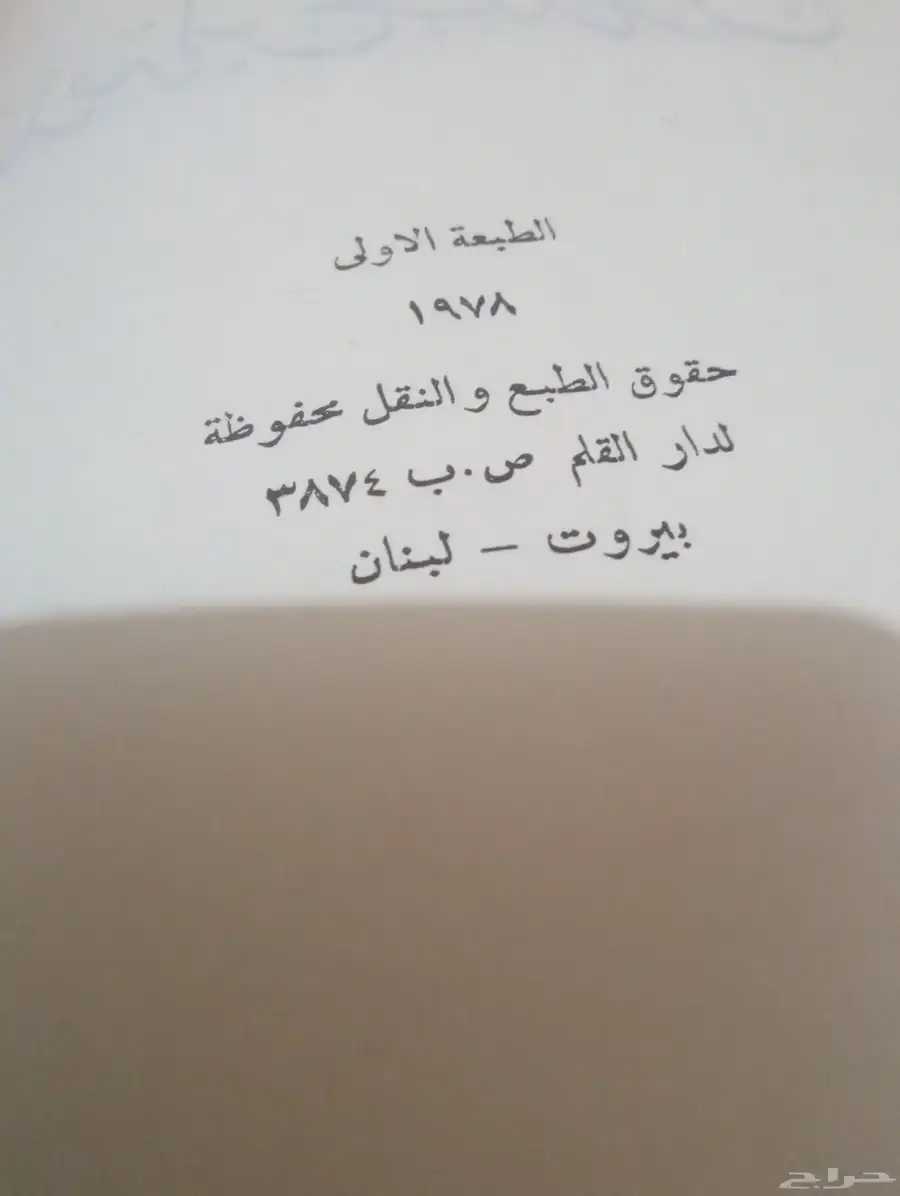 الطبعة الاولى
١٩٧٨
حقوق الطبع والنقل محفوظة
لدار القلم ص.ب ٣٨٧٤
بيروت – لبنان
حراج